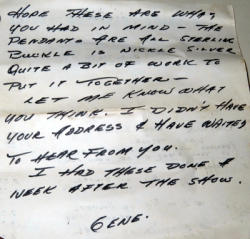 HOPE THESE ARE WHAT
YOU HAD IN MIND - THE
PENDANTS ARE ALL STERLING
BUCKLE IS NICKLE SILVER
QUITE A BIT OF WORK TO
PUT IT TOGETHER -
LET ME KNOW WHAT
YOU THINK. I DIDN'T HAVE
YOUR ADDRESS & HAVE WAITED
TO HEAR FROM YOU.
I HAD THESE DONE A
WEEK AFTER THE SHOW.
GENE.